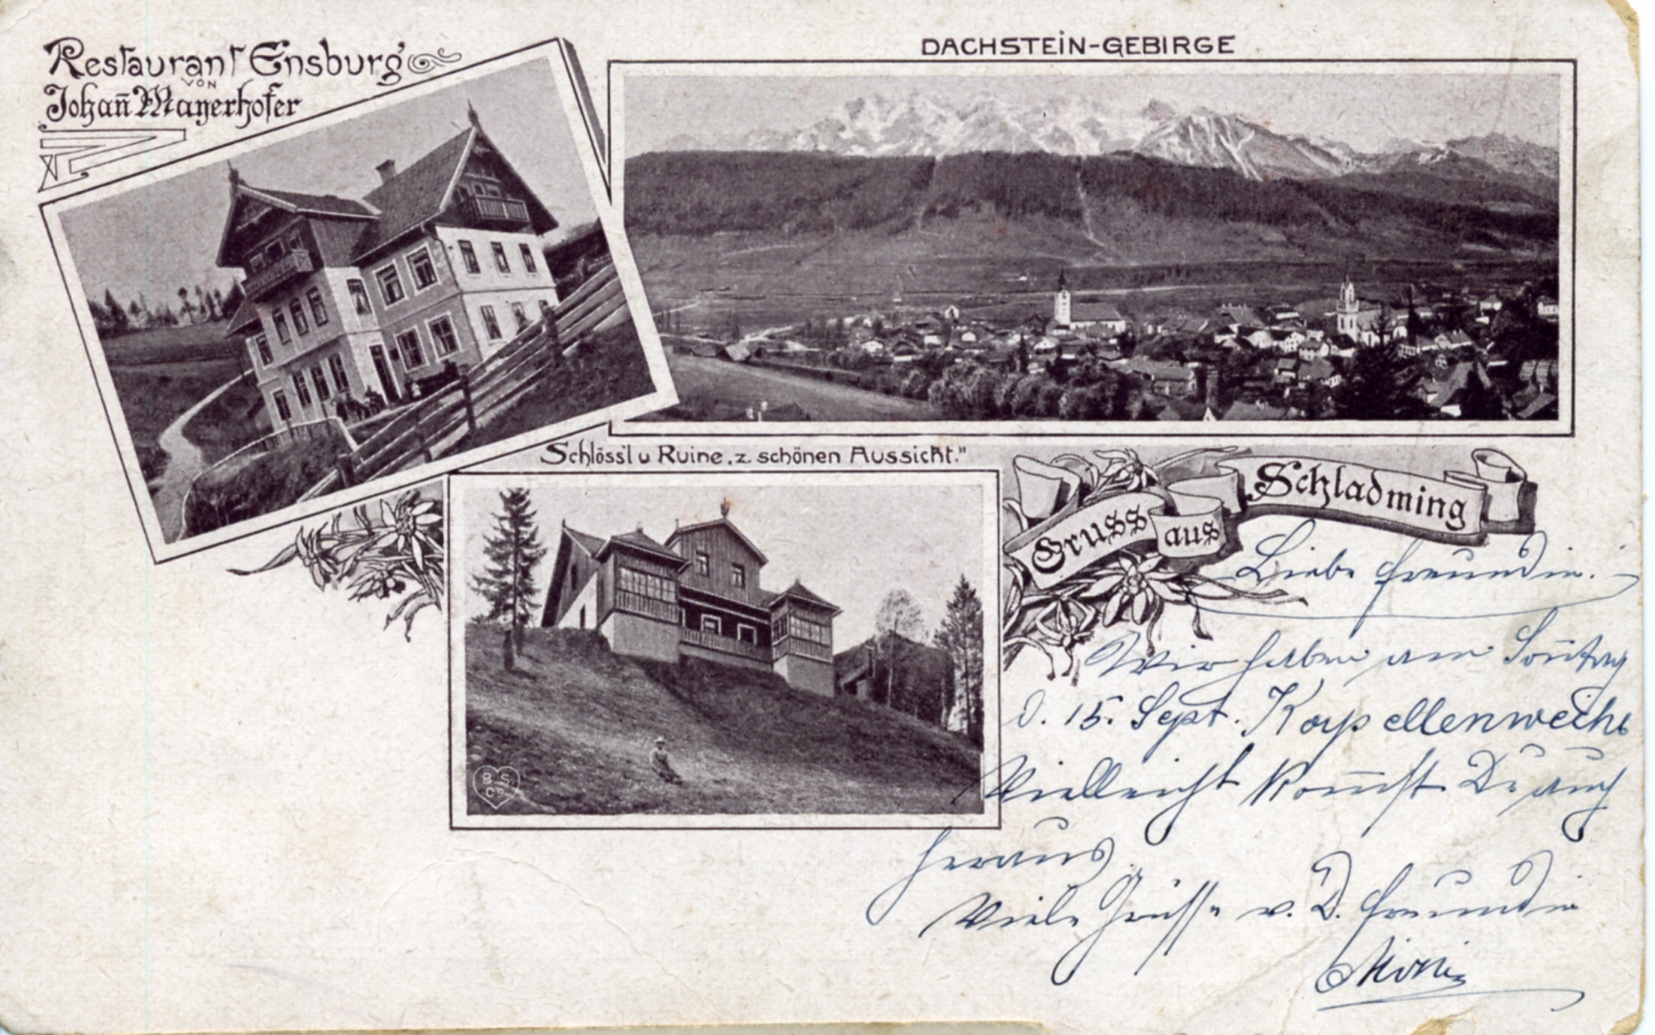 Restaurant Ensburg
VON
Johan̄ Mayerhofer
DACHSTEIN-GEBIRGE
Schlöss'l u Ruine „z schönen Aussicht."
Gruss aus Schladming
B S
Co
Liebe Freundin.
Wir haben am Son̄tag
d. 15. Sept. Kappellenweihe
Vielleicht kom̄st Du auch
heraus
Viele Grüsse v. D. Freundin